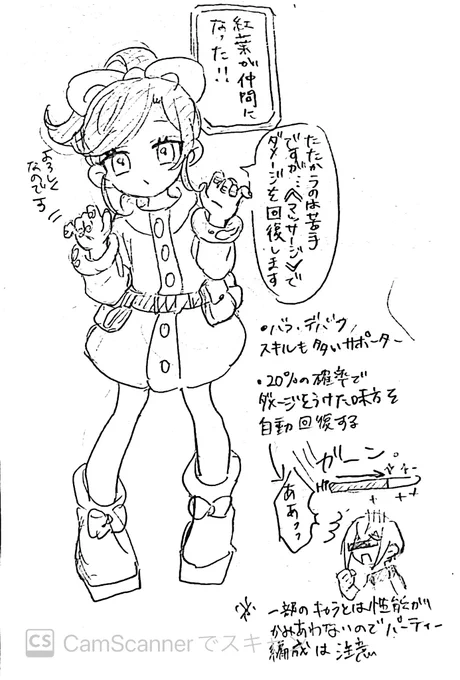 紅葉が仲間に
なった!!
よろしく
なのです
たたかうのは苦手
ですが…《マッサージ》で
ダメージを回復します
・バフ・デバフ
スキルも多いサポーター
・20%の確率で
ダメージをうけた味方を
自動回復する
ガーン。
ああっっ
※一部のキャラとは性能が
かみあわないのでパーティー
編成は注意
CS CamScannerでスキ